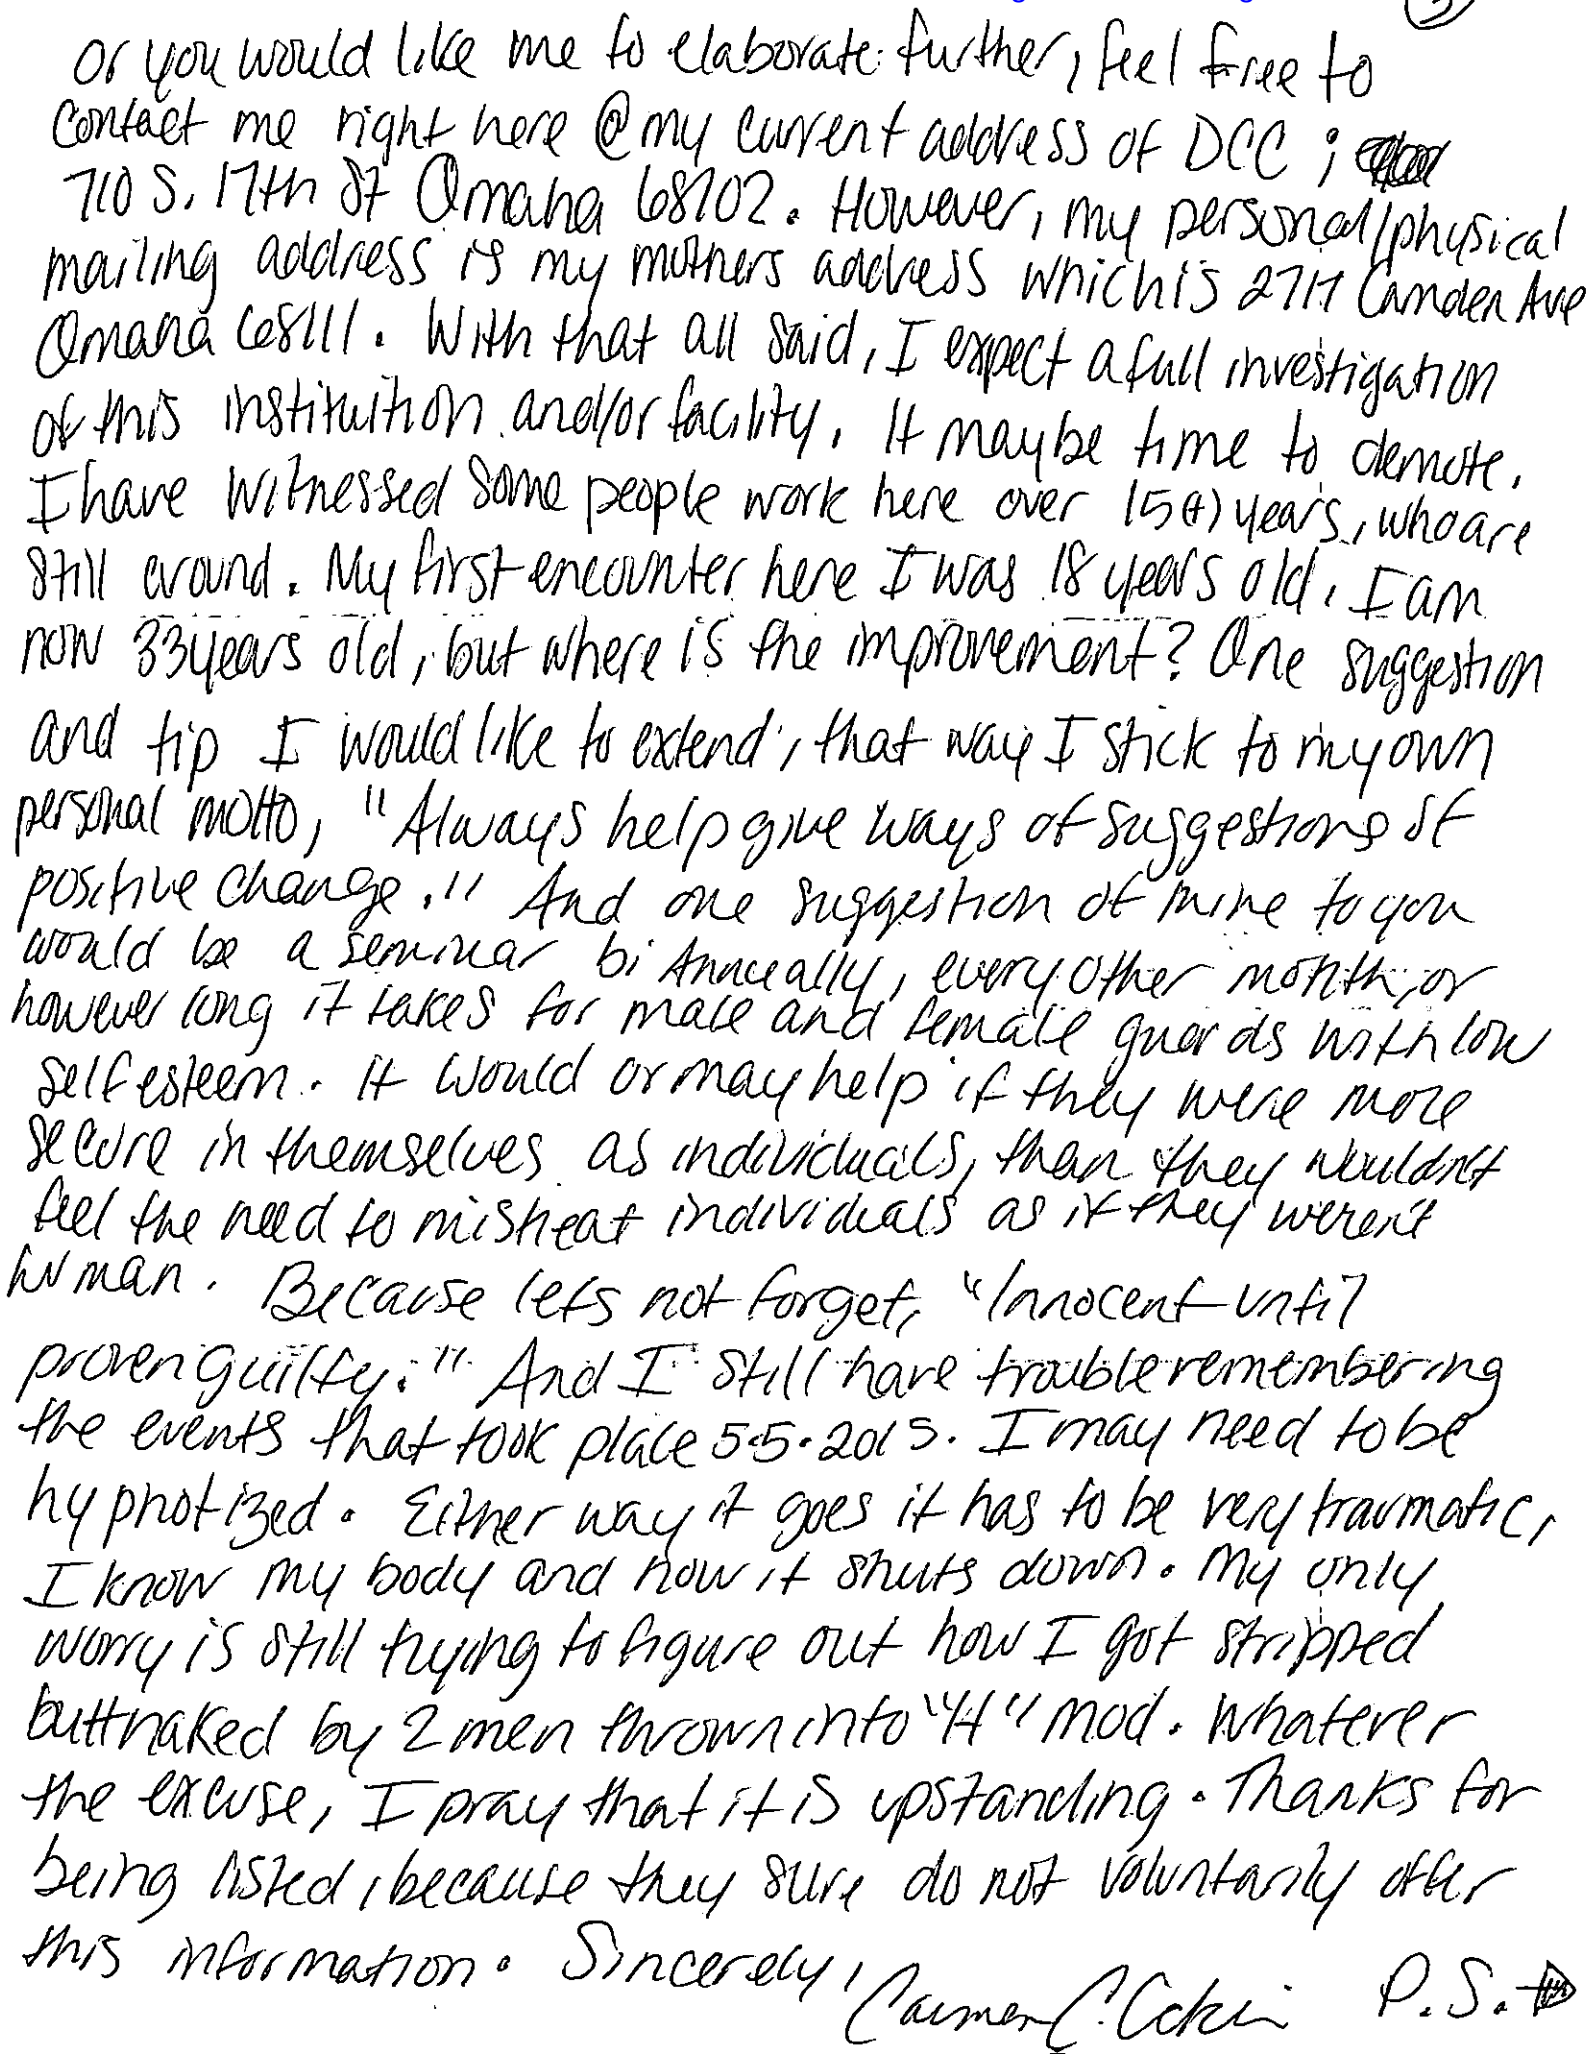 Or you would like me to elaborate further, feel free to
contact me right here @ my current address of DCC ;
710 S. 17th St Omaha 68102. However, my personal/physical
mailing address is my mothers address which is 2717 Camden Ave
Omaha 68111. With that all said, I expect a full investigation
of this instituition and/or facility. It maybe time to demote.
I have witnessed some people work here over 15(+) years, who are
still around. My first encounter here I was 18 years old, I am
now 33 years old, but where is the improvement? One suggestion
and tip I would like to extend, that way I stick to my own
personal motto, "Always help give ways of suggestions of
positive change." And one suggestion of mine to you
would be a seminar bi Annually, every other month, or
however long it takes for male and female guards with low
self esteem. It would or may help if they were more
secure in themselves as individuals, than they wouldn't
feel the need to mistreat individuals as if they weren't
human. Because lets not forget, "Innocent until
proven guilty." And I still have trouble remembering
the events that took place 5.5.2015. I may need to be
hyphotized. Either way it goes it has to be very traumatic,
I know my body and how it shuts down. My only
worry is still trying to figure out how I got stripped
buttnaked by 2 men thrown into "H" mod. Whatever
the excuse, I pray that it is upstanding. Thanks for
being listed, because they sure do not voluntarily offer
this information. Sincerely, Carmen C. P.S.